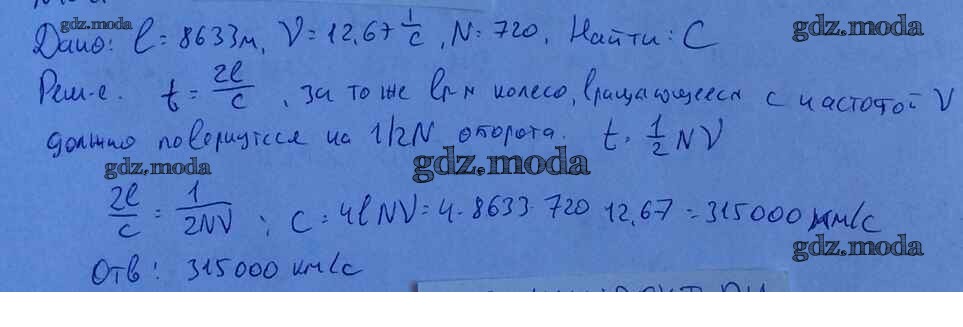 gdz.moda
Дано: l = 8633м, V = 12,67 1/c, N = 720, Найти: C
gdz.moda
Реш-е. t = 2l/c, за то же вр-я колесо, вращающееся с частотой V
должно повернуться на 1/2N оборота. t = 1/2 NV
gdz.moda
gdz.moda
2l/c = 1/2NV; C = 4lNV = 4·8633·720 12,67 = 315000 км/c
gdz.moda
Отв: 315000 км/c
gdz.moda